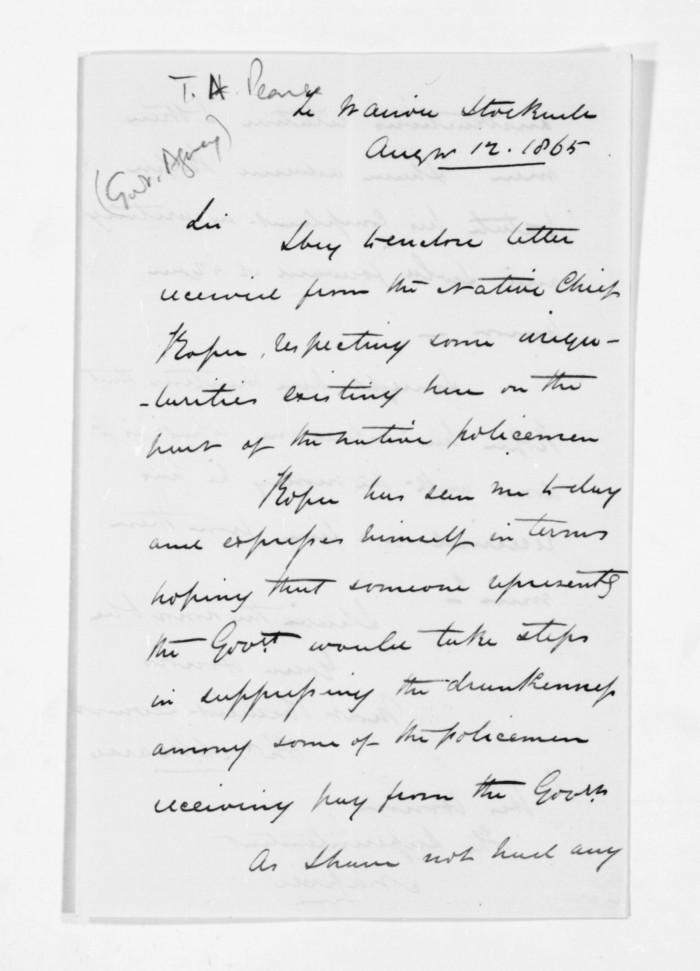 T. H. Pearce
Te Wairoa Stockade
Augst 12. 1865
(Govt. Agency)
Sir
I beg to enclose letter
received from the Native Chief
Kopu, respecting some irregu-
-larities existing here on the
part of the native policemen
Kopu has seen me to day
and expresses himself in terms
hoping that someone representg
the Govt. would take steps
in suppressing the drunkenness
among some of the policemen
receiving pay from the Govt.
As I have not had any